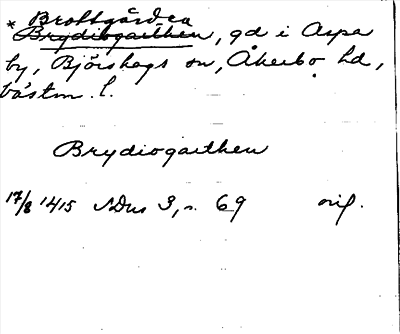 * Brottgård-ea
Brydiogaithen, gd i Aspa
by, Björskogs sn, Åkerbo hd,
Västm. l.
Brydiogaithen
17/8 1415 SDns 3, s. 69 orig.